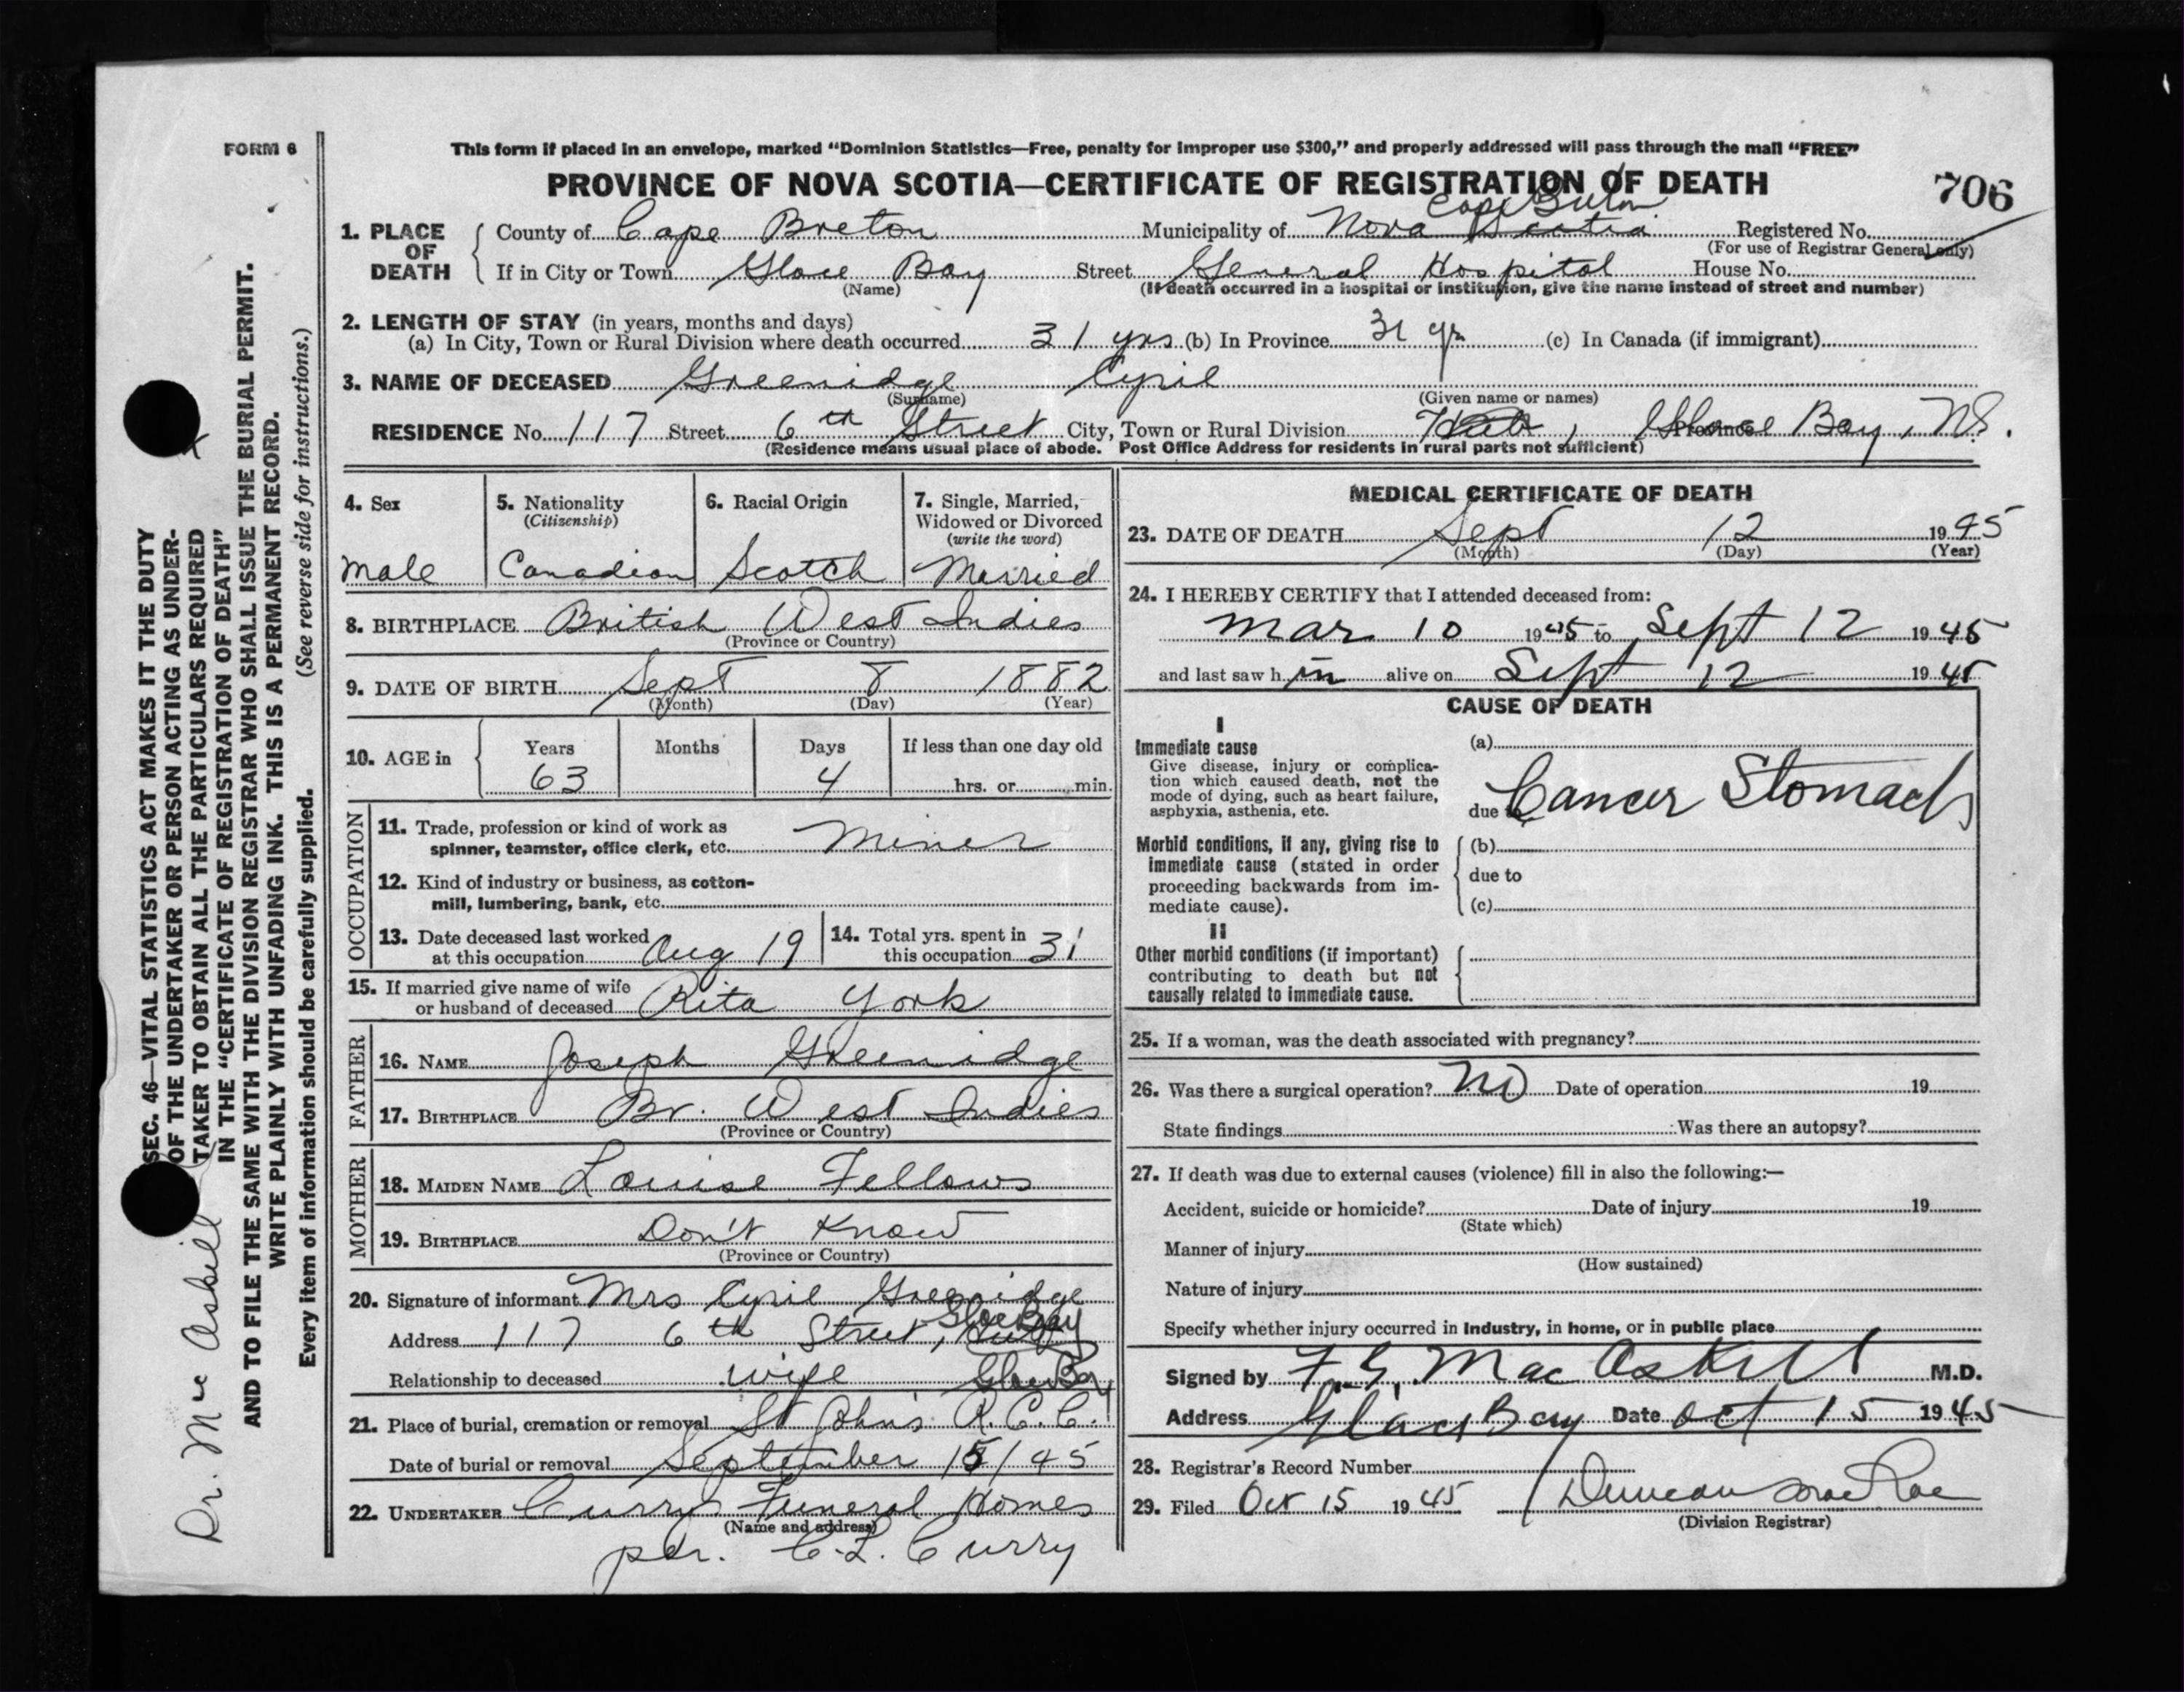 FORM 6
This form if placed in an envelope, marked "Dominion Statistics—Free, penalty for improper use $300," and properly addressed will pass through the mail "FREE"
PROVINCE OF NOVA SCOTIA—CERTIFICATE OF REGISTRATION OF DEATH
706
1. PLACE OF DEATH
County of Cape Breton Municipality of Nova Scotia Cape Breton Registered No.
(For use of Registrar General only)
If in City or Town Glace Bay Street General Hospital House No.
(Name) (If death occurred in a hospital or institution, give the name instead of street and number)
2. LENGTH OF STAY (in years, months and days)
(a) In City, Town or Rural Division where death occurred 31 yrs (b) In Province 31 yr (c) In Canada (if immigrant)
3. NAME OF DECEASED Greenidge Cyril
(Surname) (Given name or names)
RESIDENCE No. 117 Street 6th Street City, Town or Rural Division Province Glace Bay, NS.
(Residence means usual place of abode. Post Office Address for residents in rural parts not sufficient)
4. Sex
Male
5. Nationality
(Citizenship)
Canadian
6. Racial Origin
Scotch
7. Single, Married,
Widowed or Divorced
(write the word)
Married
8. BIRTHPLACE British West Indies
(Province or Country)
9. DATE OF BIRTH Sept 8 1882
(Month) (Day) (Year)
10. AGE in
Years Months Days If less than one day old
63 4 hrs. or min.
OCCUPATION
11. Trade, profession or kind of work as
spinner, teamster, office clerk, etc. Miner
12. Kind of industry or business, as cotton-
mill, lumbering, bank, etc.
13. Date deceased last worked
at this occupation Aug 19
14. Total yrs. spent in
this occupation 31
15. If married give name of wife
or husband of deceased Rita York
FATHER
16. NAME Joseph Greenidge
17. BIRTHPLACE Br. West Indies
(Province or Country)
MOTHER
18. MAIDEN NAME Louise Fellows
19. BIRTHPLACE Don't Know
(Province or Country)
20. Signature of informant Mrs Cyril Greenidge
Address 117 6th Street, Glace Bay
Relationship to deceased wife
Glace Bay
21. Place of burial, cremation or removal St John's R.C.C.
Date of burial or removal September 15/45
22. UNDERTAKER Curry Funeral Homes
(Name and address)
per. C.L. Curry
MEDICAL CERTIFICATE OF DEATH
23. DATE OF DEATH Sept 12 1945
(Month) (Day) (Year)
24. I HEREBY CERTIFY that I attended deceased from:
Mar 10 1945 to Sept 12 1945
and last saw h im alive on Sept 12 1945
CAUSE OF DEATH
I
Immediate cause
Give disease, injury or complica-
tion which caused death, not the
mode of dying, such as heart failure,
asphyxia, asthenia, etc.
(a)
due to Cancer Stomach
Morbid conditions, if any, giving rise to
immediate cause (stated in order
proceeding backwards from im-
mediate cause).
(b)
due to
(c)
II
Other morbid conditions (if important)
contributing to death but not
causally related to immediate cause.
25. If a woman, was the death associated with pregnancy?
26. Was there a surgical operation? No Date of operation 19
State findings Was there an autopsy?
27. If death was due to external causes (violence) fill in also the following:—
Accident, suicide or homicide? Date of injury 19
(State which)
Manner of injury
(How sustained)
Nature of injury
Specify whether injury occurred in industry, in home, or in public place
Signed by F. G. MacAskill M.D.
Address Glace Bay Date Oct 15 1945
28. Registrar's Record Number
29. Filed Oct 15 1945 Duncan MacRae
(Division Registrar)
SEC. 46—VITAL STATISTICS ACT MAKES IT THE DUTY
OF THE UNDERTAKER OR PERSON ACTING AS UNDER-
TAKER TO OBTAIN ALL THE PARTICULARS REQUIRED
IN THE "CERTIFICATE OF REGISTRATION OF DEATH"
AND TO FILE THE SAME WITH THE DIVISION REGISTRAR WHO SHALL ISSUE THE BURIAL PERMIT.
WRITE PLAINLY WITH UNFADING INK. THIS IS A PERMANENT RECORD.
Every item of information should be carefully supplied. (See reverse side for instructions.)
Dr. McAskill